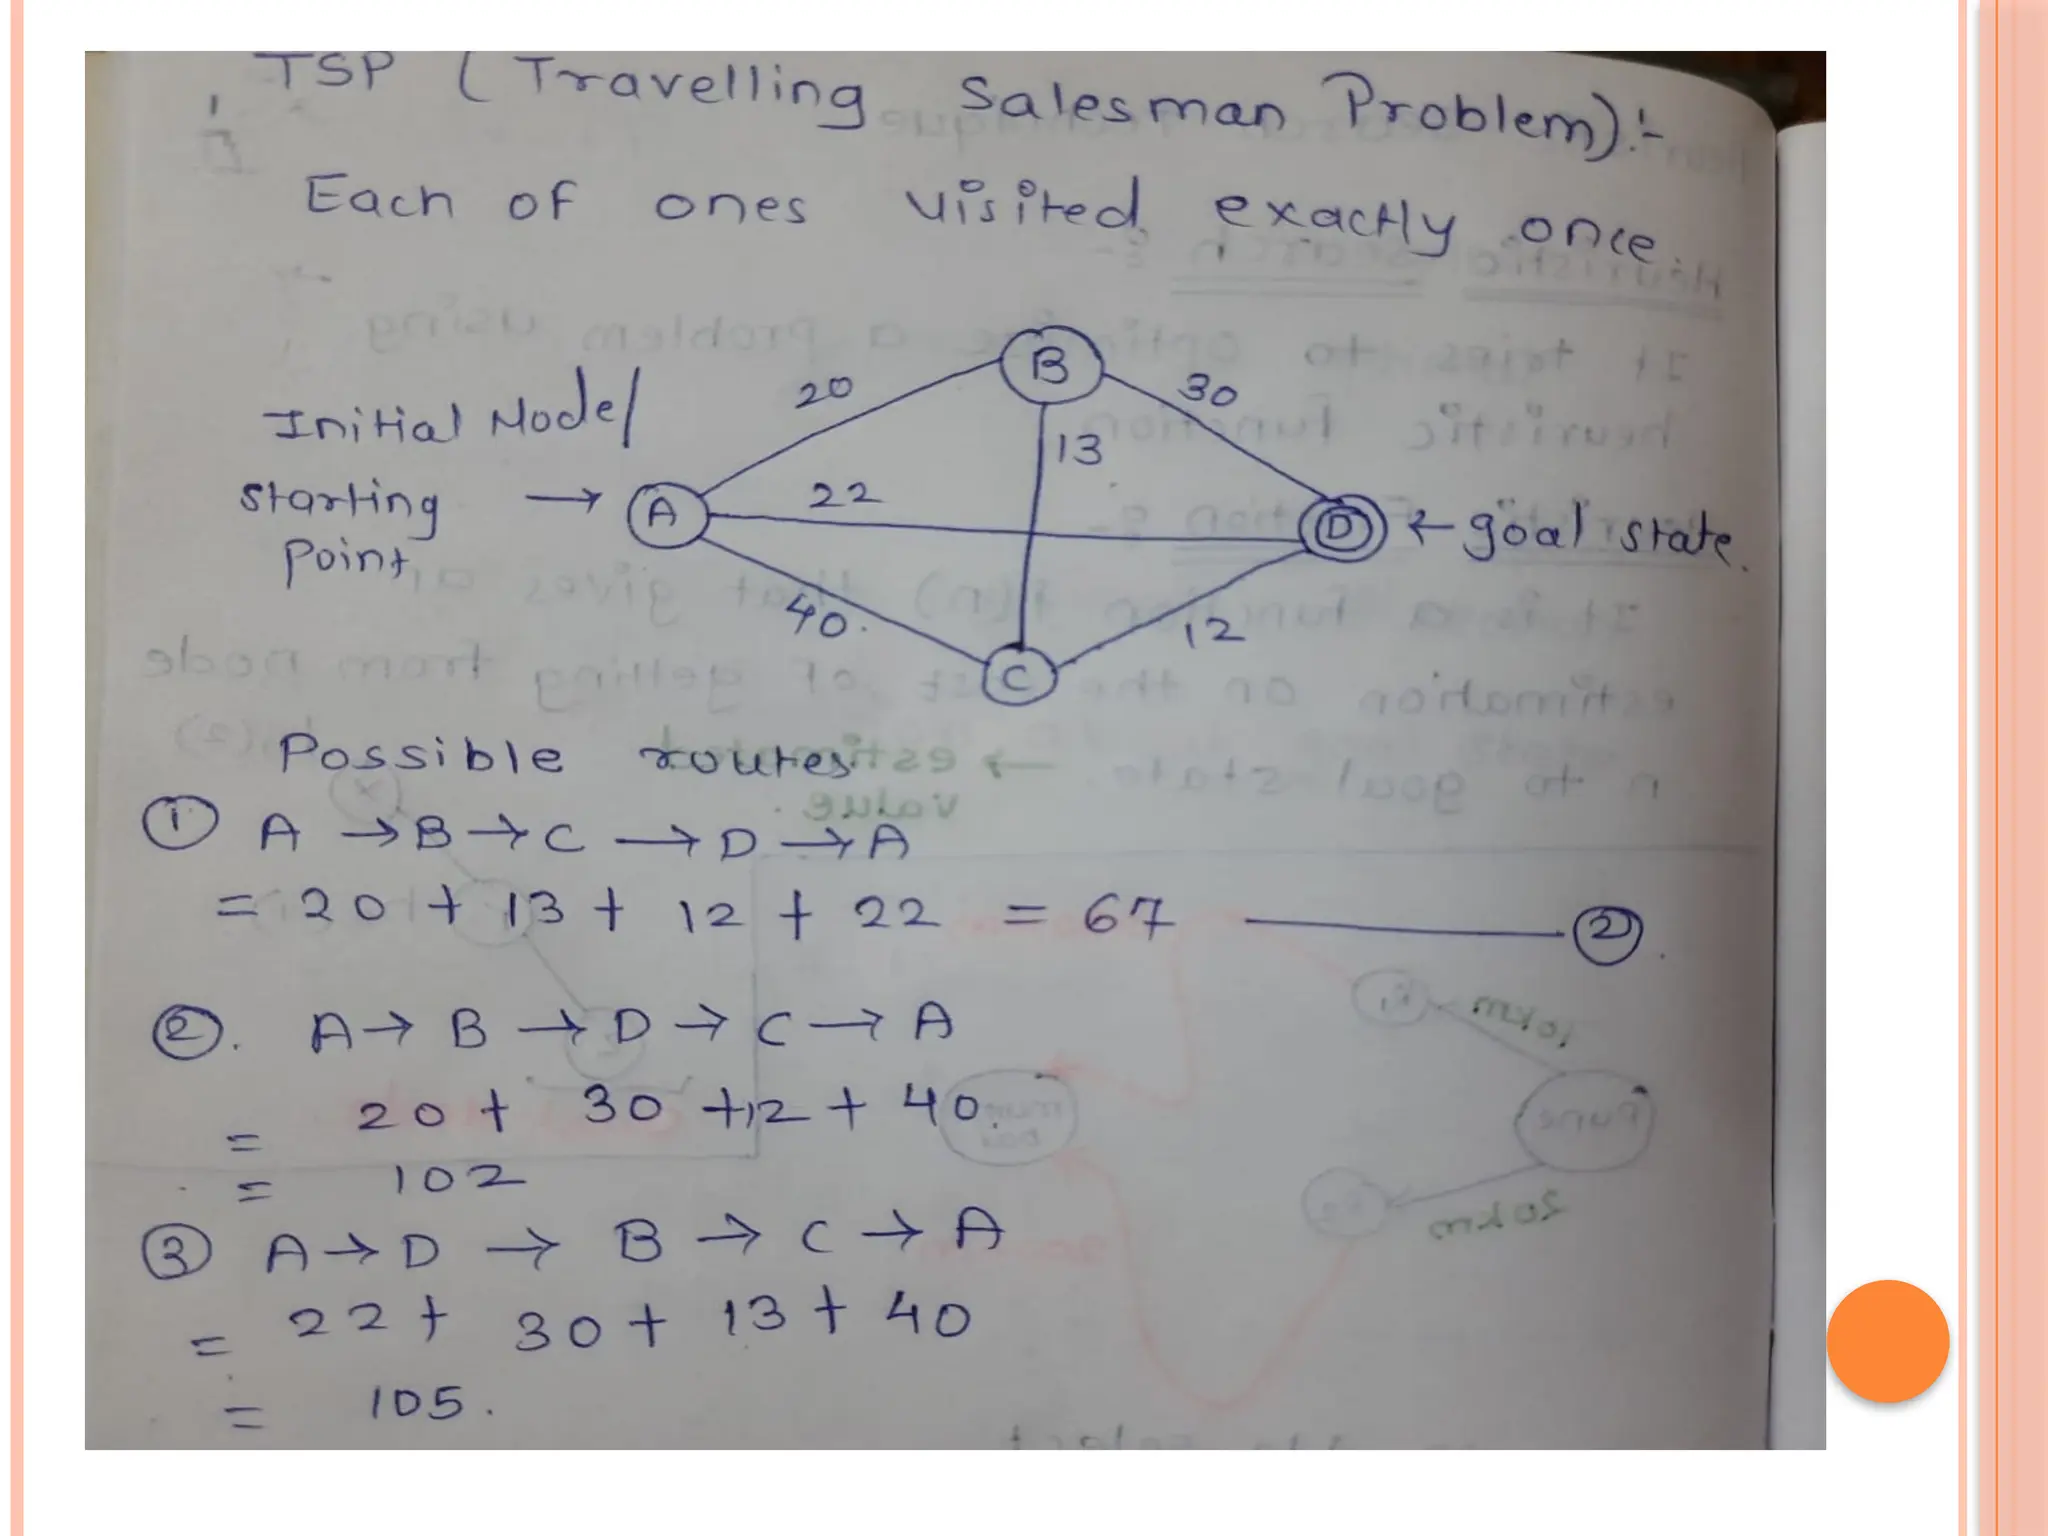 TSP ( Travelling Salesman Problem):-
Each of ones visited exactly once.
Initial Node/
starting
Point
A
B
C
D
20
30
13
22
40.
12
← goal state.
Possible routes
① A → B → C → D → A
= 20 + 13 + 12 + 22 = 67 ②.
②. A → B → D → C → A
= 20 + 30 + 12 + 40.
= 102
③ A → D → B → C → A
= 22 + 30 + 13 + 40
= 105.